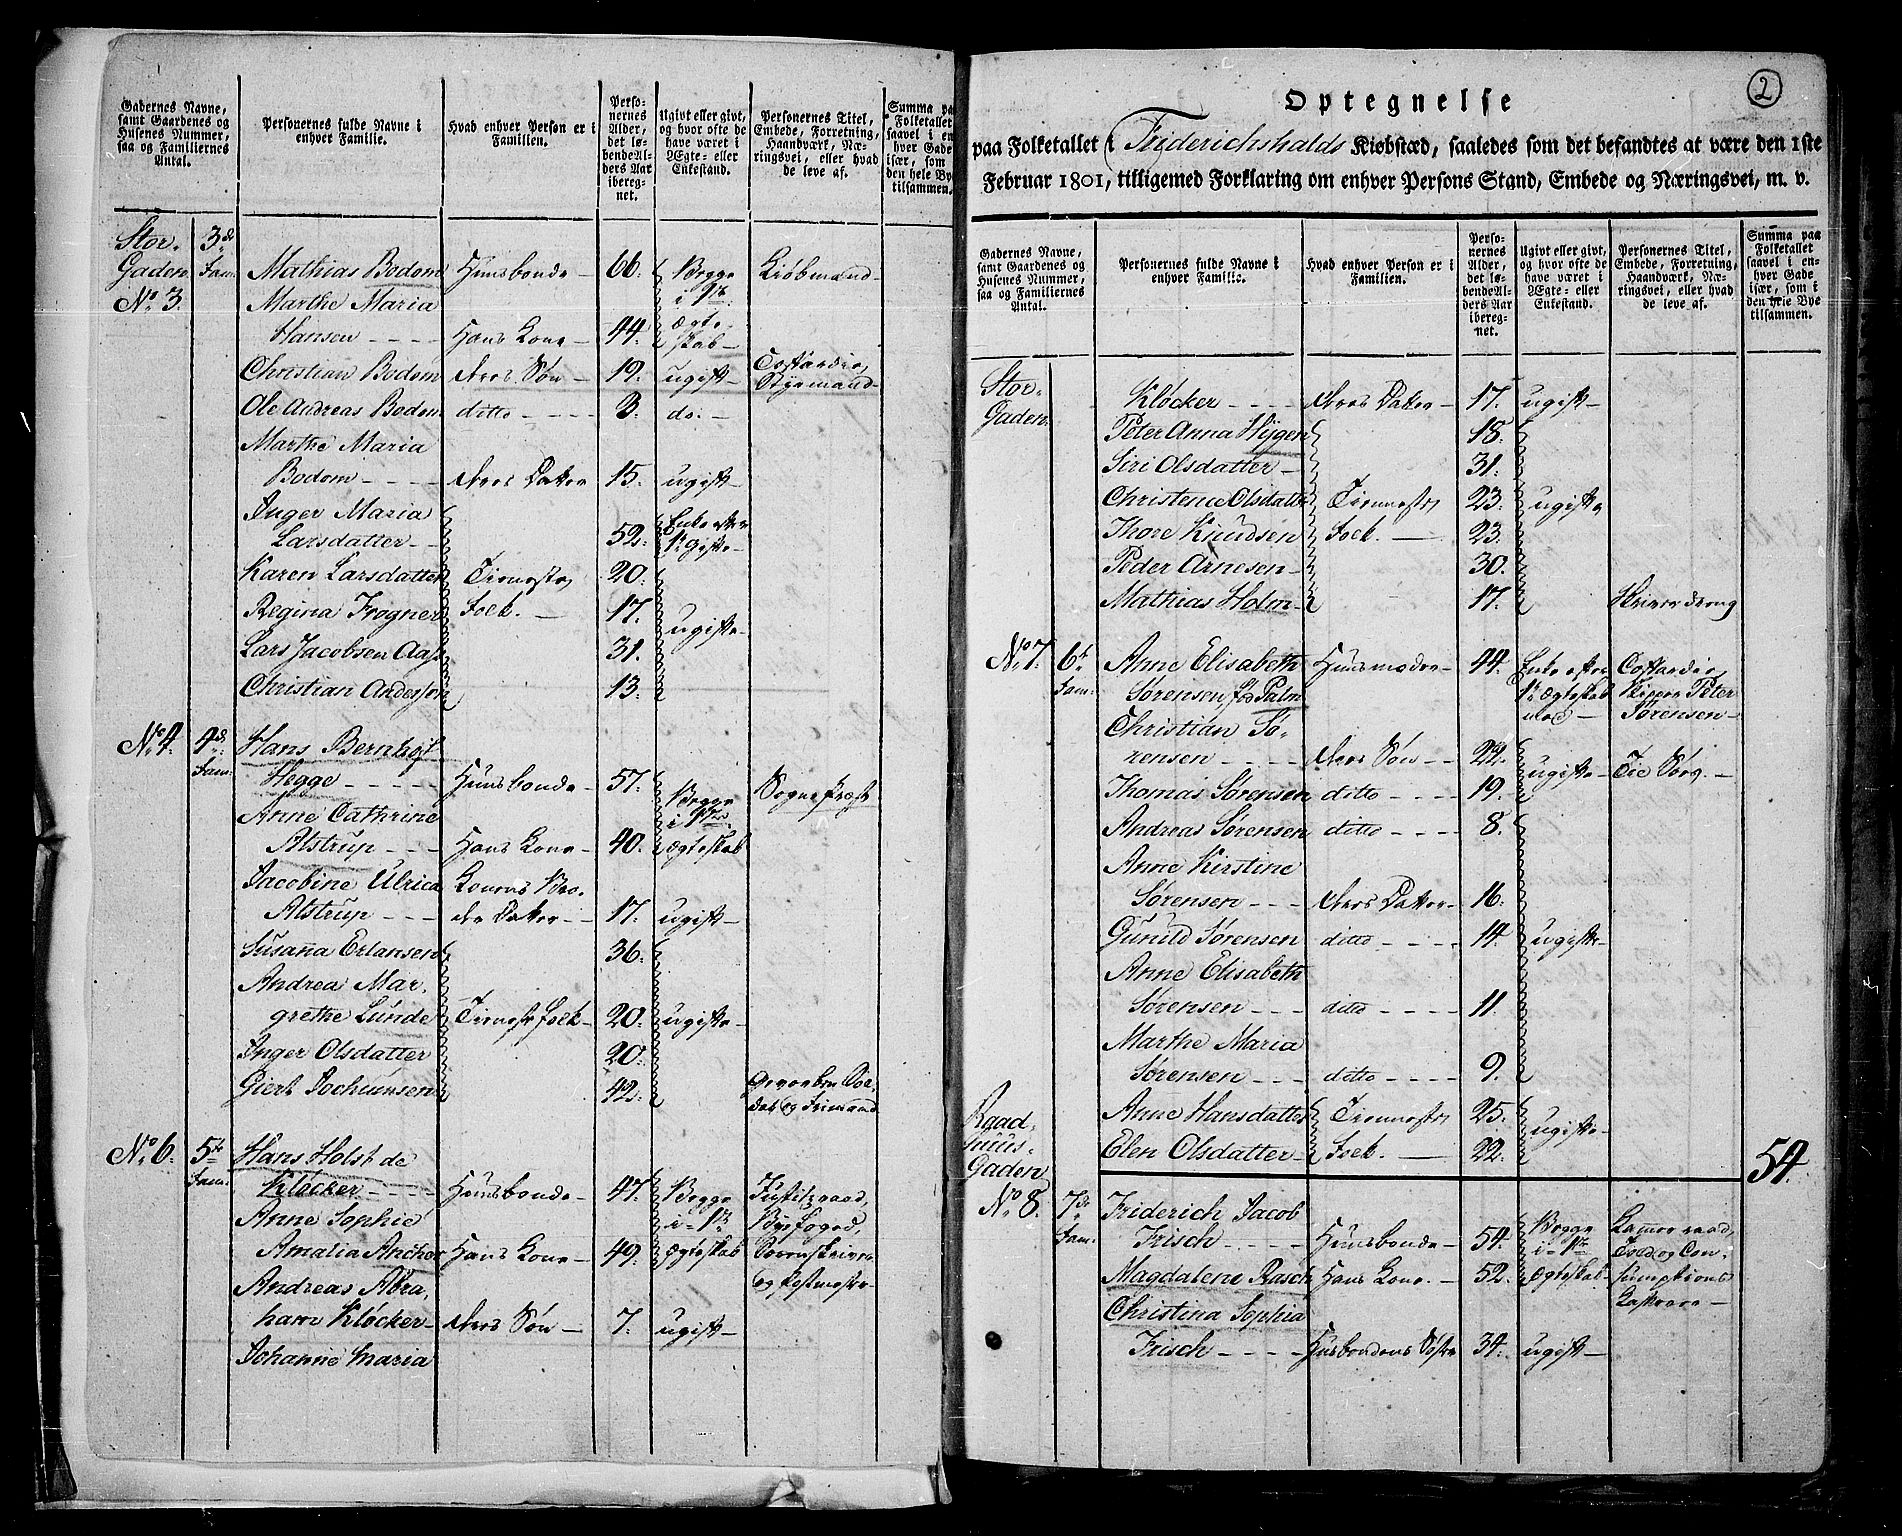 Gadernes Navne, samt Gaardenes og Husenes Nummer, saa og Familiernes Antal.
Personernes fulde Navne i enhver Familie.
Hvad enhver Person er i Familien.
Personernes Alder, det løbendeAlders Aar iberegnet.
Ugivt eller givt, og hvor ofte de have været i Ægte- eller Enkestand.
Personernes Titel, Embede, Forretning, Haandværk, Næringsvei, eller hvad de leve af.
Summa paa Folketallet saavel i enhver Gade især, som i den hele Bye tilsammen.
Stor- 3de
Gaden. Fam: Mathias Bodom Huusbonde - 66. Begge Kiøbmand
No 3. Marthe Maria i 1ste
Hansen - - - - Hans Kone - 44. ægte-
skab -
Christian Bodom deres Søn - 19. ugift - Coffardie
Styrmand
Ole Andreas Bodom ditto - - - - 3. do: -
Marthe Maria
Bodom - - - - deres Datter 15. ugift -
Inger Maria
Larsdatter - - 52. Enke efter
1e Gifte -
Karen Larsdatter Tieneste 20.
Regina Frogner Folk. - 17. ugifte -
Lars Jacobsen Aas 31.
Christian Anderson 13.
No 4. 4de Hans Bernhoft
Fam: Hegge - - - - Huusbonde - 57. Begge Sognepræst
Anne Cathrine i 1ste
Alstrup - - - Hans Kone - 40. ægteskab
Jacobine Ulrica Konens Bro-
Alstrup - - - der Datter - - 17. ugift -
Susaña Erlansen 36.
Andrea Mar-
grethe Lunde Tieneste Folk - 20. ugifte -
Inger Olsdatter 20.
Giert Jochumsen 42. Gevorben Sol-
dat og Frimand
No 6. 5te Hans Holst de
Fam: Kløcker - - - - Huusbonde - 47. Begge Justitzraad,
Anne Sophie i 1ste Byefoged,
Amalia Ancher Hans Kone - 49. ægteskab Sorenskriver
og Postmester -
Andreas Abra-
ham Kløcker - deres Søn - 7. ugift -
Johanne Maria
2
Optegnelse
paa Folketallet i Friderichshalds Kiøbstæd, saaledes som det befandtes at være den 1ste
Februar 1801, tilligemed Forklaring om enhver Persons Stand, Embede og Næringsvei, m. v.
Gadernes Navne, samt Gaardenes og Husenes Nummer, saa og Familiernes Antal.
Personernes fulde Navne i enhver Familie.
Hvad enhver Person er i Familien.
Personernes Alder, det løbendeAlders Aar iberegnet.
Ugivt eller givt, og hvor ofte de have været i Ægte- eller Enkestand.
Personernes Titel, Embede, Forretning, Haandværk, Næringsvei, eller hvad de leve af.
Summa paa Folketallet saavel i enhver Gade især, som i den hele Bye tilsammen.
Stor- Kløcker - - - - deres Datter - 17. ugift -
Gaden. Peter Anna Hygen 18.
Siri Olsdatter - 31.
Christence Olsdatter Tieneste 23. ugifte
Thore Knudsen Folk. - 23.
Peder Arnesen - 30.
Mathias Holm - 17. Skriverdreng
No 7. 6te Anne Elisabeth Huusmoder - 44. Enke efter Coffardie
Fam: Sørensen fød Palm 1e ægteskab Skipper Peter
Christian Sø- med - Sørensen -
rensen - - - - deres Søn - - 24. ugifte - Til Søes. -
Thomas Sørensen ditto - - - - 19.
Andreas Sørensen ditto - - - - 8.
Anne Kirstine
Sørensen - - - deres Datter - 16.
Gunild Sørensen ditto - - - - 14. ugifte -
Anne Elisabeth
Sørensen - - - ditto - - - - 11.
Marthe Maria
Sørensen - - - ditto - - - - 9.
Anne Hansdatter Tieneste 25. ugifte -
Elen Olsdatter - Folk. - 22. 54.
Raad-
huus-
Gaden
No 8. 7de Friderich Jacob
Fam: Frisch - - - - Huusbonde - 54. Begge Kammerraad,
i 1ste Told og Con-
Magdalene Rasch Hans Kone. - 52. ægteskab - sumptions
Christina Sophia Kasserer -
Frisch - - - - Husbondens Søster 34. ugift -